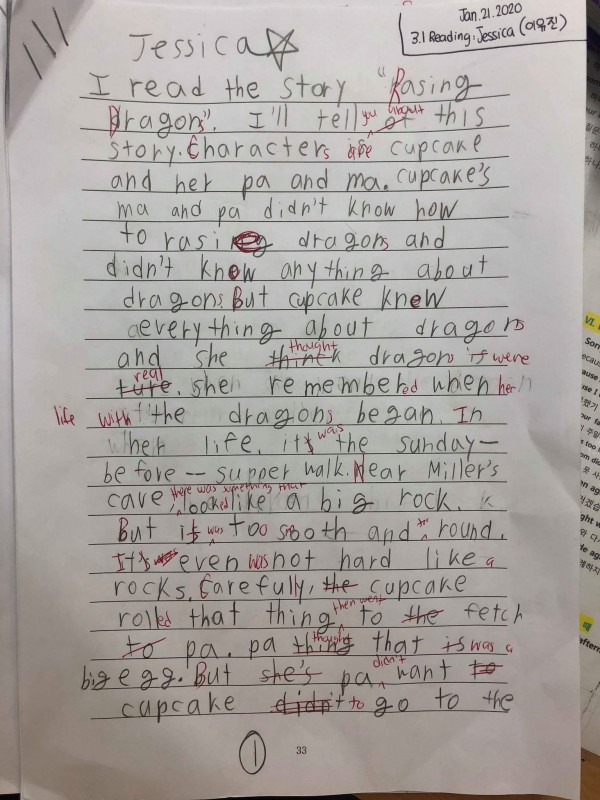 Jan.21.2020
3.1 Reading: Jessica (이유진)
Jessica
I read the story "Rasing
Dragons". I'll tell you about of this
story. Characters are cupcake
and her pa and ma. cupcake's
ma and pa didn't know how
to rasing dragons and
didn't know anything about
dragons But cupcake knew
aeverything about dragons
and she think thought dragons if were
ture. real she remembered when her
life with the dragons began. In
life, it's was the sunday—
before — supper walk. Near Miller's
cave, there was something that looked like a big rock.
But it's was too smooth and too round.
It's even was not hard like a
rocks. Carefully, the cupcake
rolled that thing then went to the fetch
to pa. pa thing thought that is was a
big egg. But she's pa didn't want to
cupcake didn't to go to the
1
33